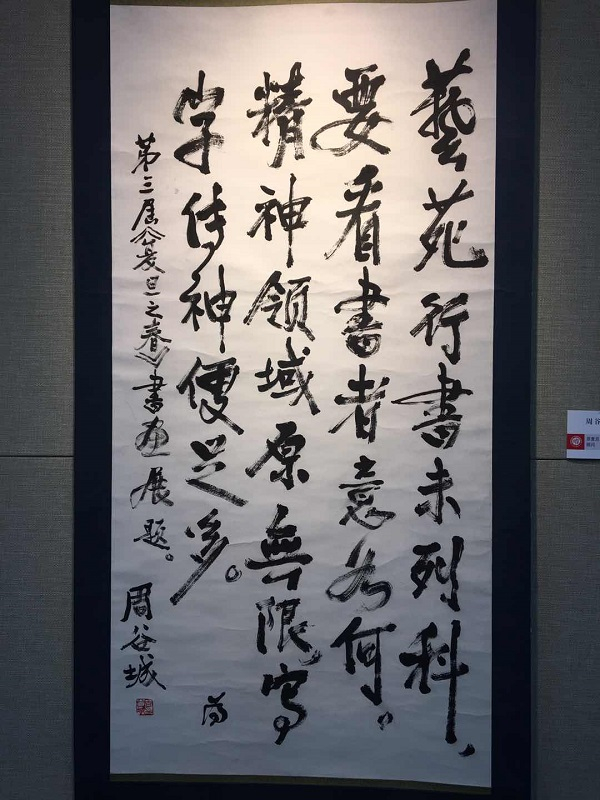 藝苑行書未列科,
要看書者意如何。
精神领域原無限,寫
字传神便足多。
第三届《复旦之春》書画展題。
周谷城
周谷